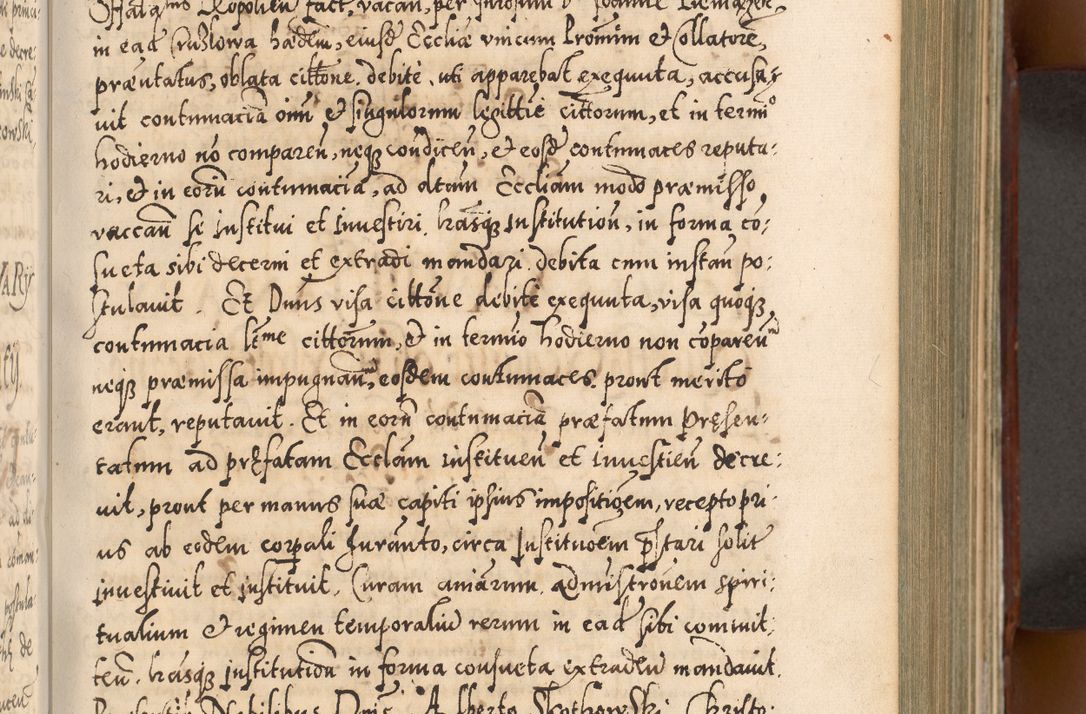 in ead Kruzlowa hædem, eiusd Eccliæ vnicum Promim et Collatorē,
præntatus, oblata cittone debite uti apparebat exequuta, accusa,
vit contumaciā oīm et singulorum legittiē cittorum, et in termō
hodierno nō comparēn, neqȝ condicēn, et eosd contumaces reputa-
ri, et in eorū contumaciā, ad dtam Eccliam modō præmisso
vaccāñ se institui et inuestiri, lrāsqȝ institutioñ, in forma co-
sueta sibi decerni et extradi mandari debita cum instañ po-
stulauit. Et Dnus visa cittōne debite exequuta, visa quoqȝ
contumacia lr̄me cittorum, et in termīo hodierno non cōpareñ
neqȝ præmissa impugnañ, eosdem contumaces, prout meritō
erant, reputauit. Et in eorū contumaciā præfatum Præsen-
tatum ad præfatam Ecclām instituēñ et inuestiēñ decre-
uit, prout per manus suæ capiti ipsius impositiōem, recepto pri-
us ab eodem corpali Juramto, circa Institutiōem pstari solit
inuestiuit et instituit. Curam aniārum admistrōnem spiri-
tualium et regimen temporaliū rerum in ead sibi commit-
teñ, lrāsqȝ institutioñ in forma consueta extradeñ mandauit.
Nobilibus Dnis Alberto Kristo-